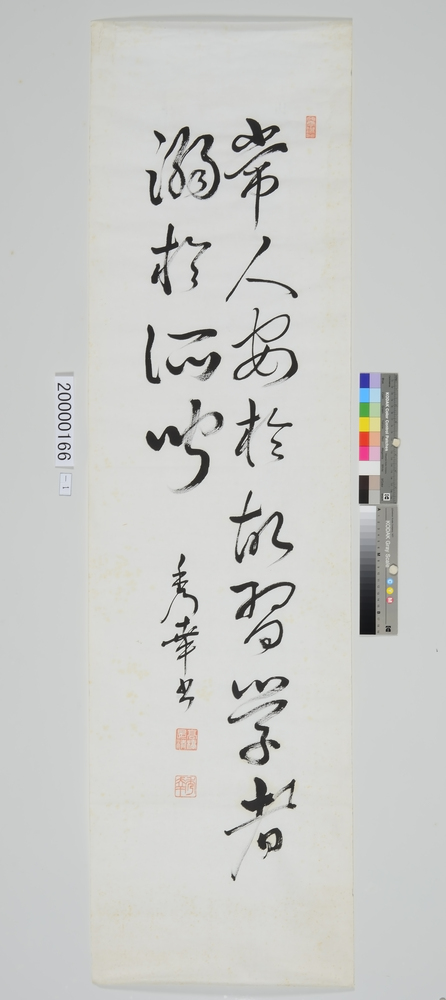 常人安於故習学者
溺於所聞
秀華書
20000166
-1
KODAK Color Control Patches
KODAK Gray Scale
C Y M